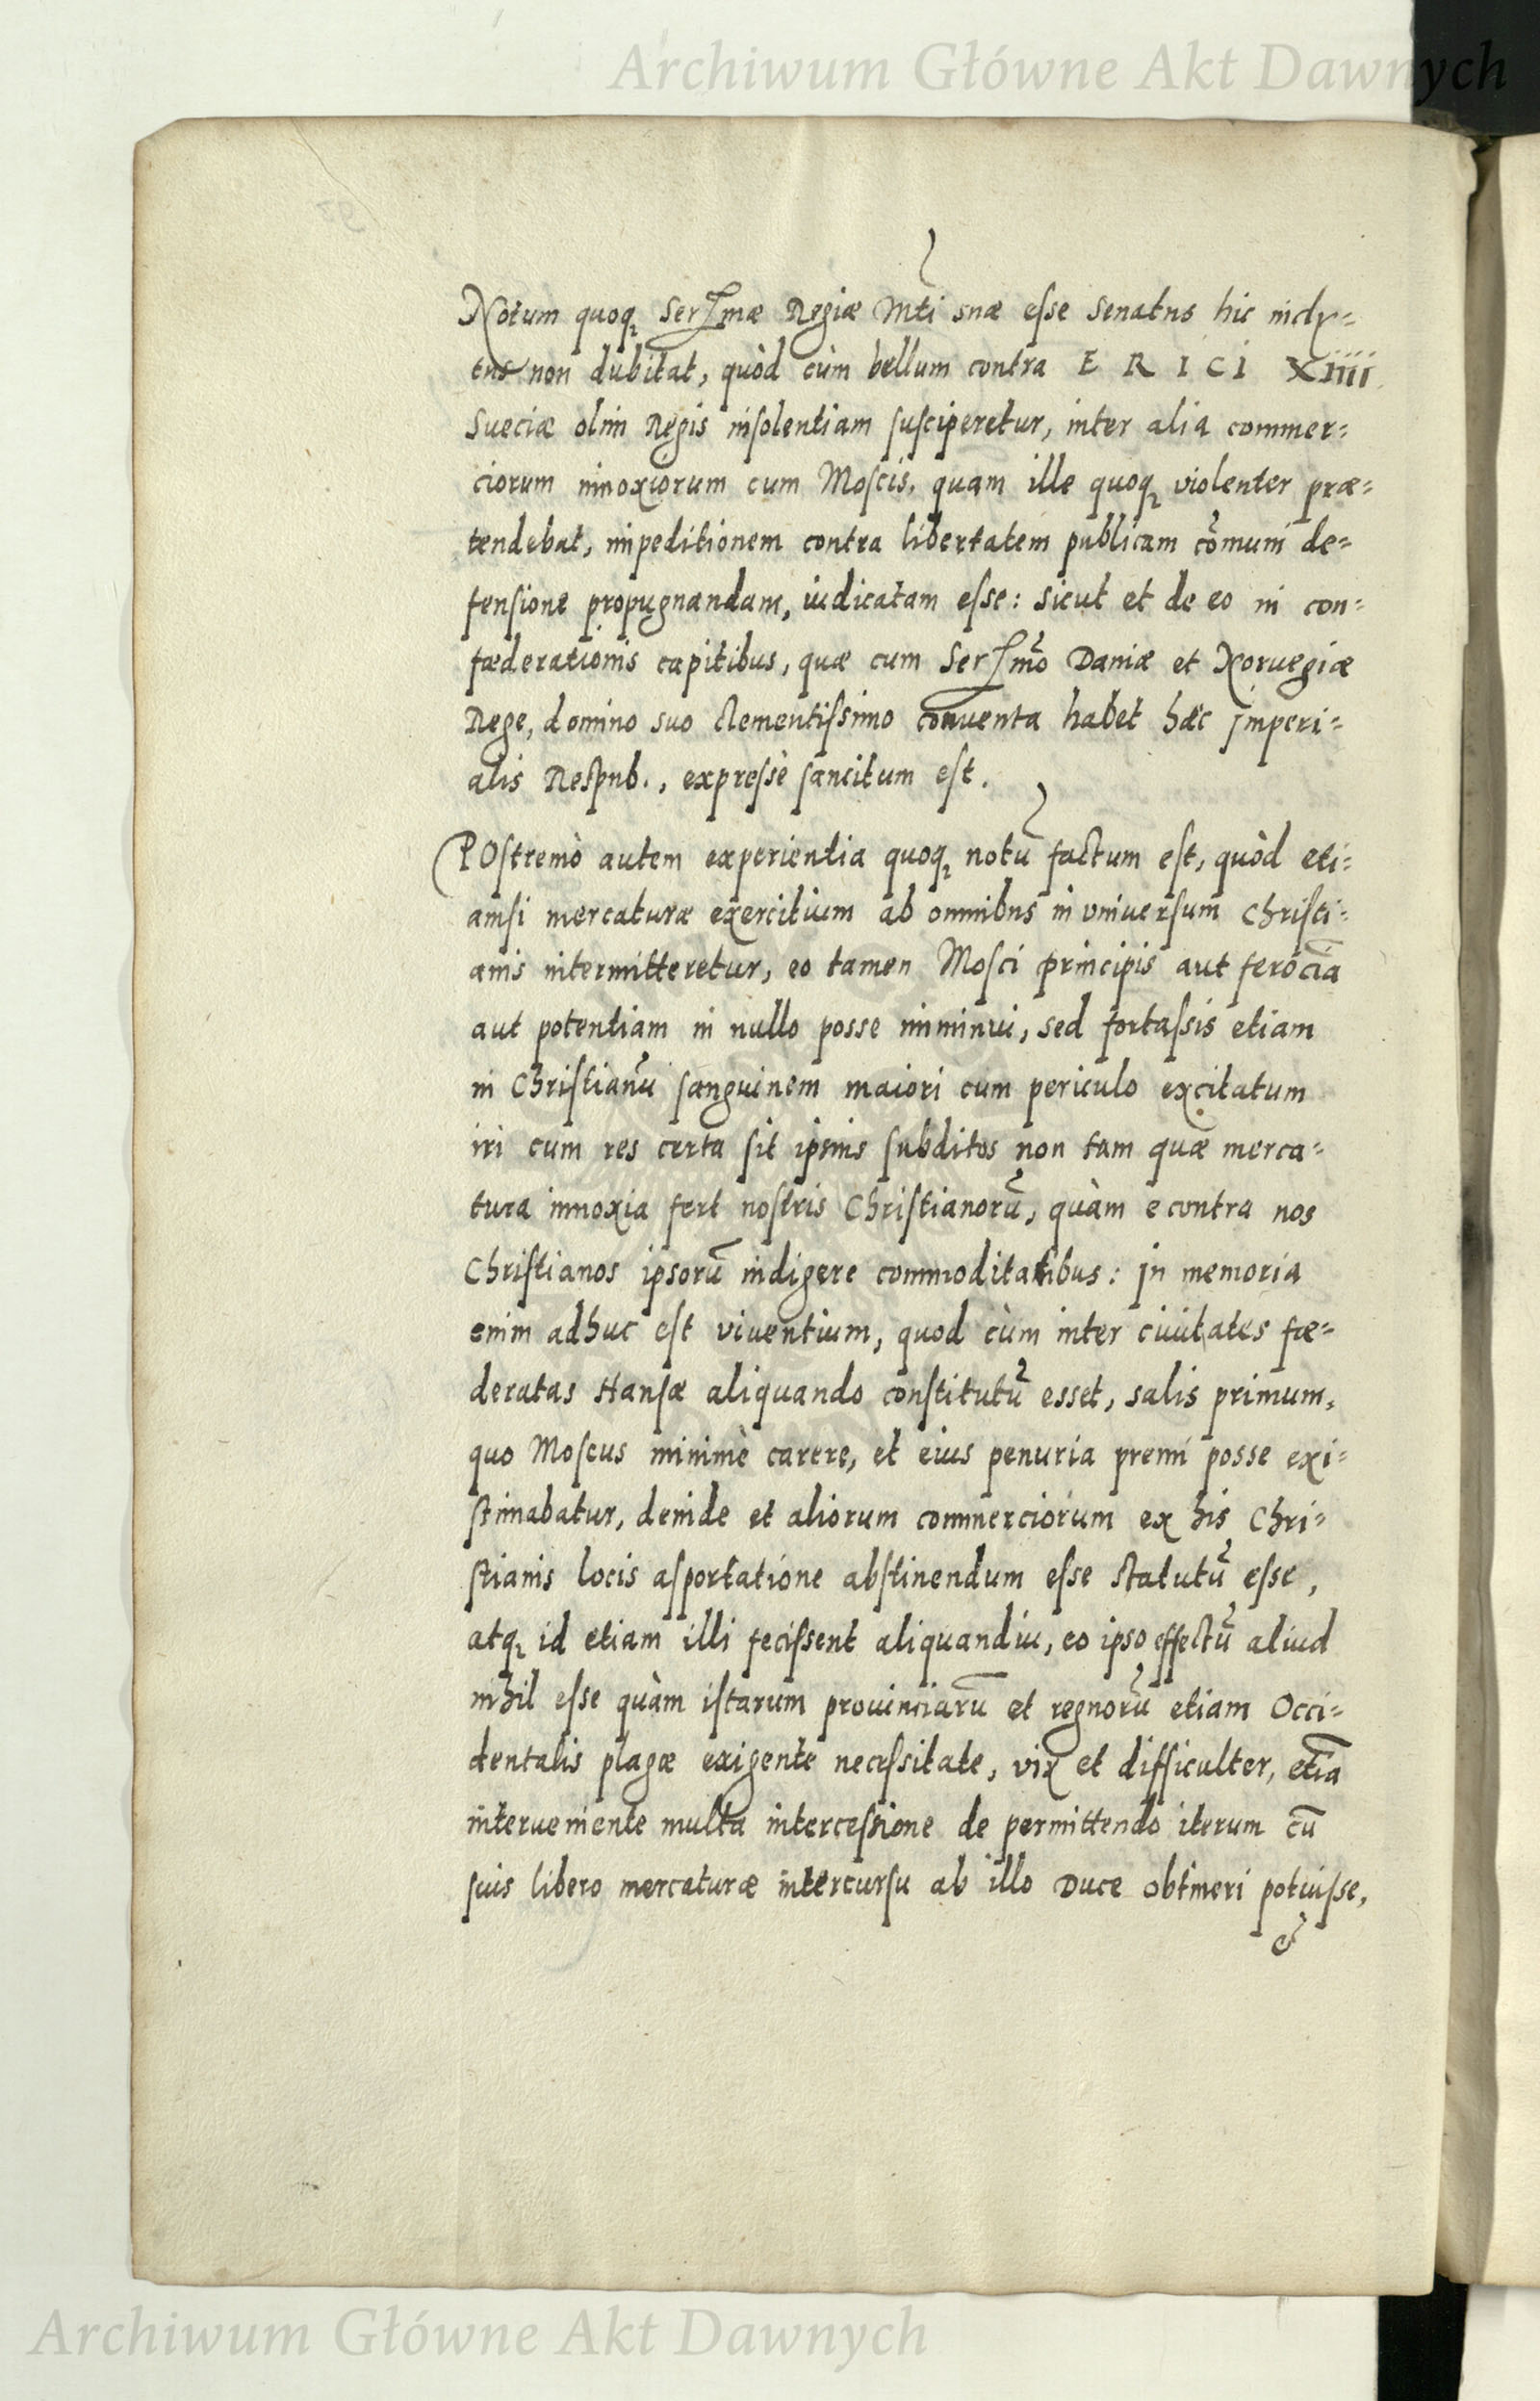 Archiwum Główne Akt Dawnych
Notum quoq Serſmæ Regiæ Mti suæ eſse Senatus hic incly=
tus non dubitat, quòd cùm bellum contra E R I C I XIIII
Sueciæ olim Regis inſolentiam ſuſciperetur, inter alia commer=
ciorum innoxiorum cum Moſcis, quam ille quoq violenter præ=
tendebat, impeditionem contra libertatem publicam cõmuni de=
fenſione propugnandam, iudicatam eſse: sicut et de eo in con=
fæderationis capitibus, quæ cum Serſmõ Daniæ et Noruegiæ
Rege, domino suo clementiſsimo conuenta habet hæc Imperi=
alis Reſpub., expreſsè ſancitum eſt.
POſtremò autem experientia quoq notũ factum eſt, quòd eti=
amſi mercaturæ exercitium ab omnibus in vniuerſum Chriſti=
anis intermitteretur, eo tamen Moſci principis aut ferociã
aut potentiam in nullo posse imminui, sed fortaſsis etiam
in Chriſtianũ ſanguinem maiori cum periculo excitatum
iri cum res certa ſit ipsius ſubditos non tam quæ merca=
tura innoxia fert noſtris Chriſtianorũ, quàm e contra nos
Chriſtianos ipsorũ indigere commoditatibus: In memoria
enim adhuc eſt viuentium, quod cùm inter ciuitates fæ=
deratas Hanſæ aliquando conſtitutũ esset, salis primum,
quo Moſcus minimè carere, et eius penuria premi posse exi=
ſtimabatur, deinde et aliorum commerciorum ex his Chri=
ſtianis locis aſportatione abſtinendum eſse ſtatutũ eſse,
atq id etiam illi feciſsent aliquandiu, eo ipso effectũ aliud
nihil eſse quàm iſtarum prouinciarũ et regnorũ etiam Occi=
dentalis plagæ exigente neceſsitate, vix et difficulter, etiã
interueniente multa interceſsione de permittendo iterum cũ
ſuis libero mercaturæ intercurſu ab illo Duce obtineri potuiſse,
Archiwum Główne Akt Dawnych